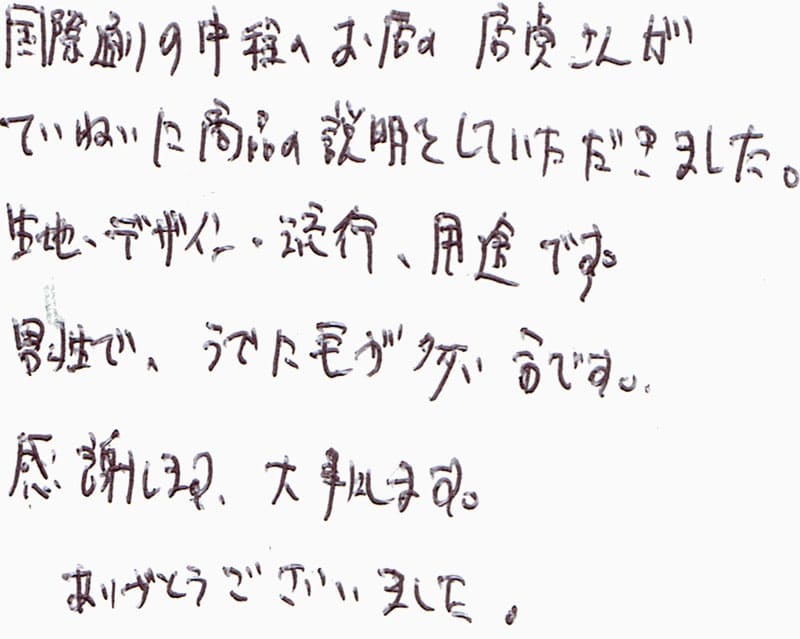 国際通りの中程のお店の店員さんが
ていねいに商品の説明をしていただきました。
生地、デザイン・流行、用途です。
男性で、うでに毛が多い方です。
感謝します、大事にします。
ありがとうございました。